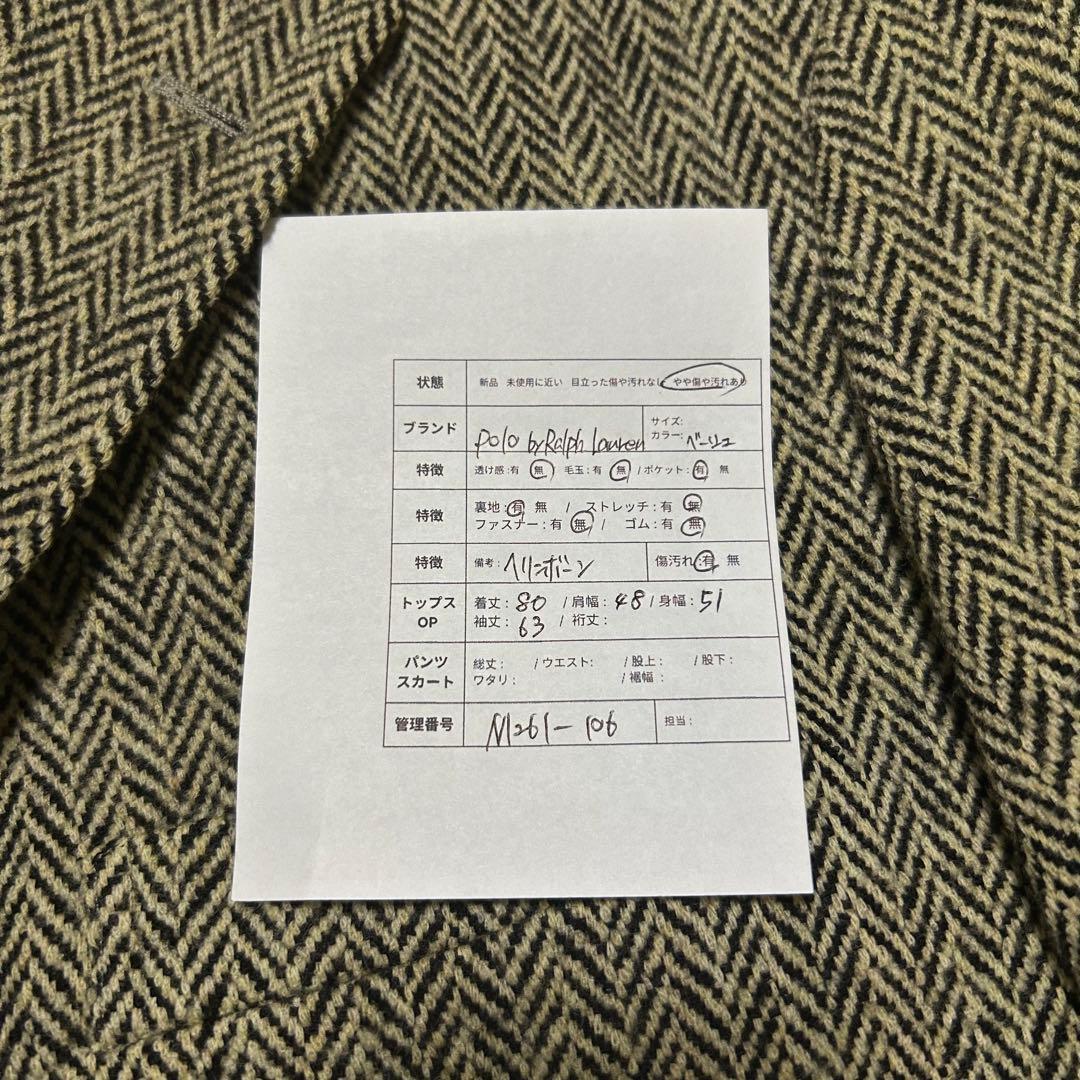 状態 新品 未使用に近い 目立った傷や汚れなし やや傷や汚れあり
ブランド Polo by Ralph Lauren サイズ:
カラー: ベージュ
特徴 透け感:有 無 毛玉:有 無 / ポケット:有 無
特徴 裏地:有 無 / ストレッチ:有 無
ファスナー:有 無 / ゴム:有 無
特徴 備考: ヘリンボーン 傷汚れ:有 無
トップス 着丈: 80 / 肩幅: 48 / 身幅: 51
OP 袖丈: 63 / 裄丈:
パンツ 総丈: / ウエスト: / 股上: / 股下:
スカート ワタリ: / 裾幅:
管理番号 N1261-106 担当: